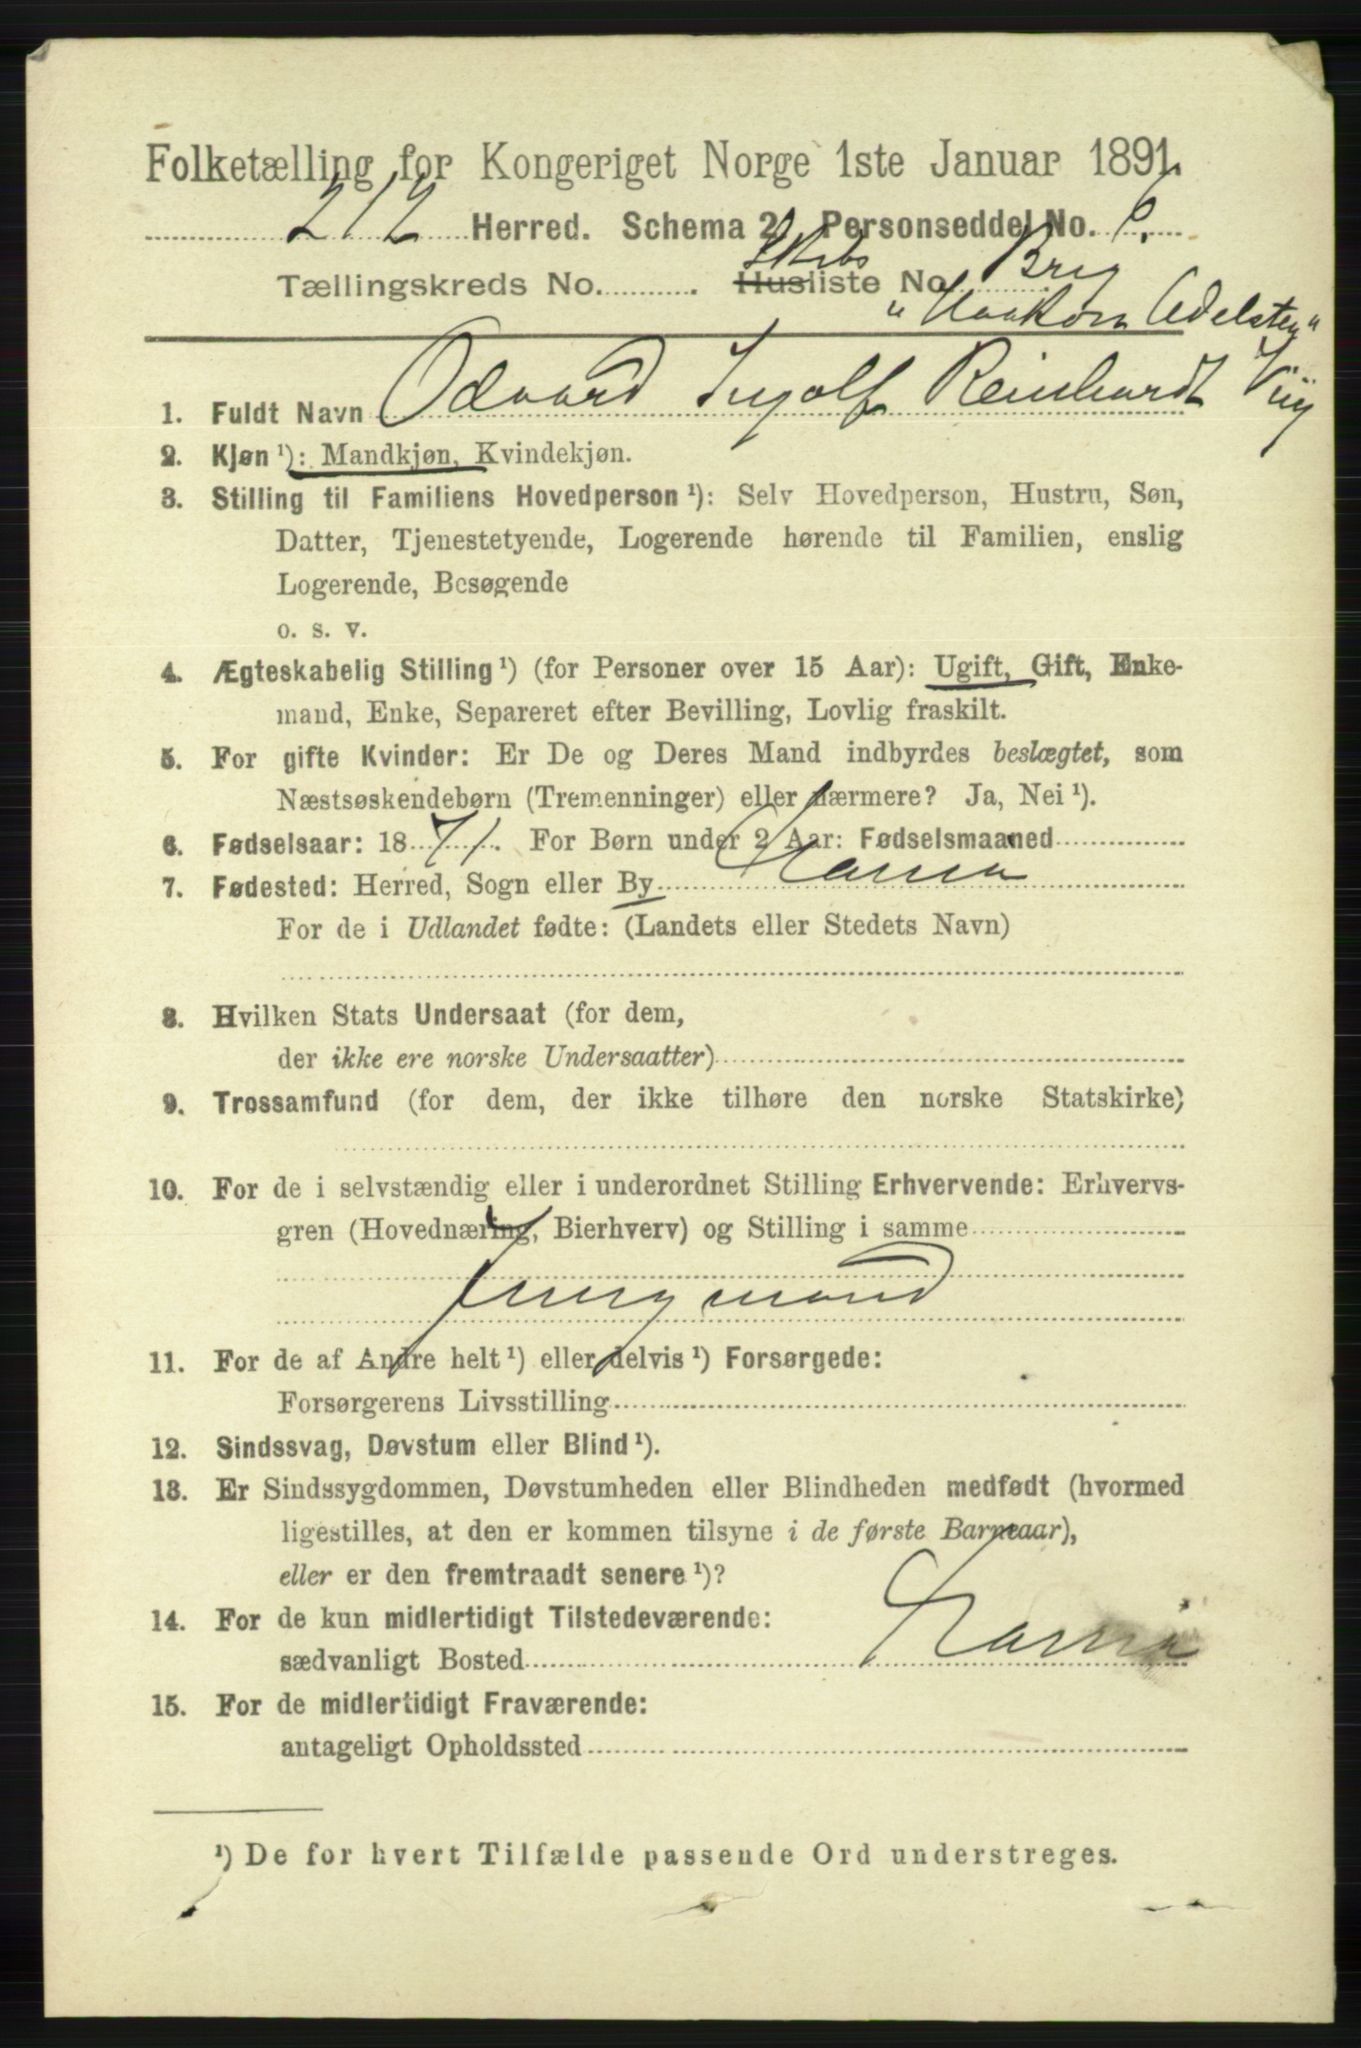 Folketælling for Kongeriget Norge 1ste Januar 1891.
212 Herred. Schema 2. Personseddel No. 6.
Tællingskreds No. . Skibsliste No. Brig
"Haakon Adelsten"
1. Fuldt Navn Odvard Ingolf Reinhardt Viig
2. Kjøn ¹): Mandkjøn, Kvindekjøn.
3. Stilling til Familiens Hovedperson ¹): Selv Hovedperson, Hustru, Søn,
Datter, Tjenestetyende, Logerende hørende til Familien, enslig
Logerende, Besøgende
o. s. v.
4. Ægteskabelig Stilling ¹) (for Personer over 15 Aar): Ugift, Gift, Enke-
mand, Enke, Separeret efter Bevilling, Lovlig fraskilt.
5. For gifte Kvinder: Er De og Deres Mand indbyrdes beslægtet, som
Næstsøskendebørn (Tremenninger) eller nærmere? Ja, Nei ¹).
6. Fødselsaar: 1871. For Børn under 2 Aar: Fødselsmaaned
7. Fødested: Herred, Sogn eller By
For de i Udlandet fødte: (Landets eller Stedets Navn)
8. Hvilken Stats Undersaat (for dem,
der ikke ere norske Undersaatter)
9. Trossamfund (for dem, der ikke tilhøre den norske Statskirke)
10. For de i selvstændig eller i underordnet Stilling Erhvervende: Erhvervs-
gren (Hovednæring, Bierhverv) og Stilling i samme
Jungmand
11. For de af Andre helt ¹) eller delvis ¹) Forsørgede:
Forsørgerens Livsstilling
12. Sindssvag, Døvstum eller Blind ¹).
13. Er Sindssygdommen, Døvstumheden eller Blindheden medfødt (hvormed
ligestilles, at den er kommen tilsyne i de første Barneaar),
eller er den fremtraadt senere ¹)?
14. For de kun midlertidigt Tilstedeværende:
sædvanligt Bosted
15. For de midlertidigt Fraværende:
antageligt Opholdssted
¹) De for hvert Tilfælde passende Ord understreges.